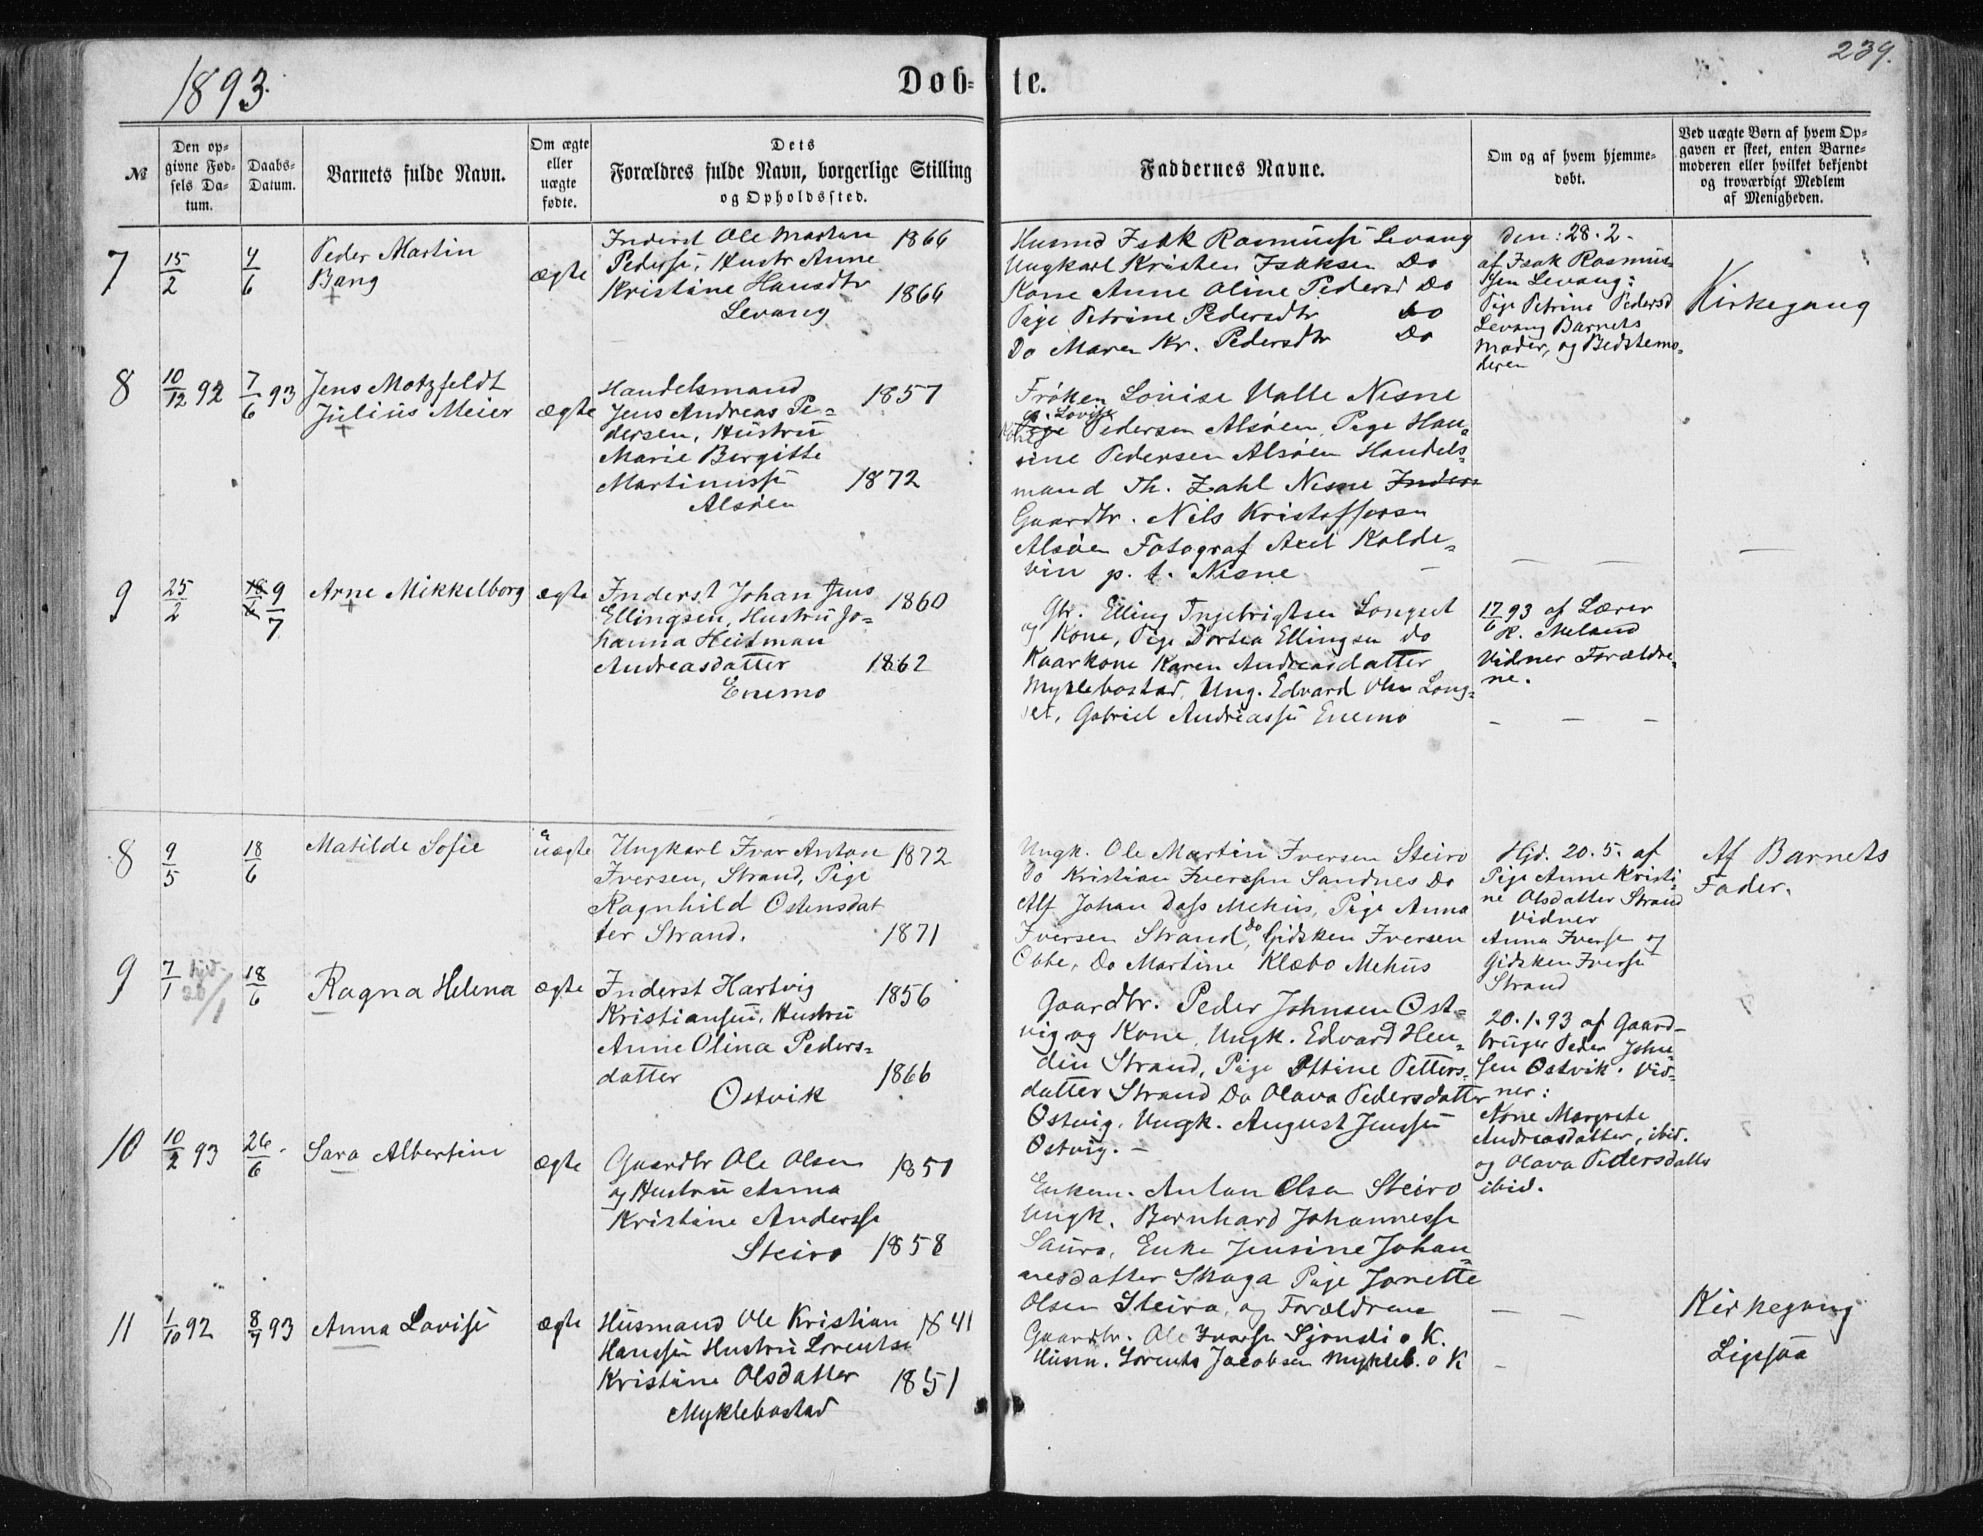 239.
1893.
Døb-
te.
№
Den op-
givne Fød-
sels Da-
tum.
Daabs-
Datum.
Barnets fulde Navn.
Om ægte
eller
uægte
fødte.
Dets
Forældres fulde Navn, borgerlige Stilling
og Opholdssted.
Faddernes Navne.
Om og af hvem hjemme-
døbt.
Ved uægte Børn af hvem Op-
gaven er skeet, enten Barne-
moderen eller hvilket bekjendt
og troværdigt Medlem
af Menigheden.
7
15/2
4/6
Peder Martin
Bang
ægte
Inderst Ole Martin 1866
Peders, Hustr Anne
Kristine Hansdtr 1866
Levang
Husmd Isak Rasmuss Levang
Ungkarl Kristen Isaksen Do
Kone Anne Oline Pedersd Do
Pige Petrine Pedersdtr Do
Do Maren Kr. Pedersdtr Do
den: 28.2.
af Isak Rasmus-
sen Levang:
Pige Petrine Pedersd
Levang Barnets
Moder, og Bedstemo-
deren
Kirkegang
8
10/12 92
7/6 93
Jens Motzfeldt
Julius Meier
ægte
Handelsmand 1857
Jens Andreas Pe-
dersen, Hustru
Marie Bergitte
Martinuss 1872
Alsøen
Frøken Louise Valle Nesne
Lovise
Pige Pedersen Alsøen, Pige Han-
sine Pedersen Alsøen Handels-
mand Th. Zahl Nesne Inders
Gaardbr. Nils Kristoffersen
Alsøen Fotograf Axel Kolde-
vin p. t. Nesne
9
25/2
18/6 9/7
Arne Mikkelborg
ægte
Inderst Johan Jens 1860
Ellingsen, Hustru Jo-
hanna Heitman
Andreasdatter 1862
Enemo
Gbr. Elling Ingebrigtsen Longset
og Kone, Pige Dortea Ellingsen Do
Kaarkone Karen Andreasdatter
Myklebostad, Ung. Edvard Olsen Long-
set, Gabriel Andreassen Enemo
17/6 93 af Lærer
K. Meland
Vidner Forældre-
ne.
8
9/5
18/6
Matilde Sofie
uægte
Ungkarl Ivar Anton 1872
Iversen, Strand, Pige
Ragnhild Ostensdat
ter Strand. 1871
Ungk. Ole Martin Iversen Steiro
Do Kristian Iversen Sandnes Do
Alf Johan Dass Mehus, Pige Anna
Iversen Strand, Do Gidsken Iversen
Do Martine Klæbo Mehus
Hjd. 20.5. af
Pige Anne Kristi-
ne Olsdatter Strand
Vidner
Anna Iversen og
Gidsken Iversen
Strand
Af Barnets
Fader.
9
7/1 hjd 20/1
18/6
Ragna Helena
ægte
Inderst Hartvig 1856
Kristiansen, Hustru
Anne Olina Peders-
datter 1866
Ostvik
Gaardbr. Peder Johnsen Ost-
vig og Kone, Ungk. Edvard Hen-
din Strand, Pige Ottine Petters-
datter Strand Do Olava Pedersdatter
Ostvig, Ungk. August Jenssen
Ostvig. –
20.1.93 af Gaard-
bruger Peder John-
sen Ostvik. Vid-
ner:
Kone Margrete
Andreasdatter, ibid.
og Olava Pedersdatter
ibid.
10
10/2 93
26/6.
Sara Albertine
ægte
Gaardbr Ole Olsen 1851
og Hustru Anna
Kristine Anderss
Steiro 1858
Enkem. Anton Olsen Steiro
Ungk. Bernhard Johannesse
Saura, Enke Jensine Johan-
nesdatter Skaga Pige Jonette
Olsen Steiro, og Forældrene
11
1/10 92
8/7 93
Anna Lovise
ægte
Husmand Ole Kristian 1841
Hanssen Hustru Lorentse
Kristine Olsdatter 1851
Myklebostad
Gaardbr. Ole Iversen Sjonsli o K.
Husm. Lorents Jacobsen Mykleb. o K
Kirkegang
Ligesaa